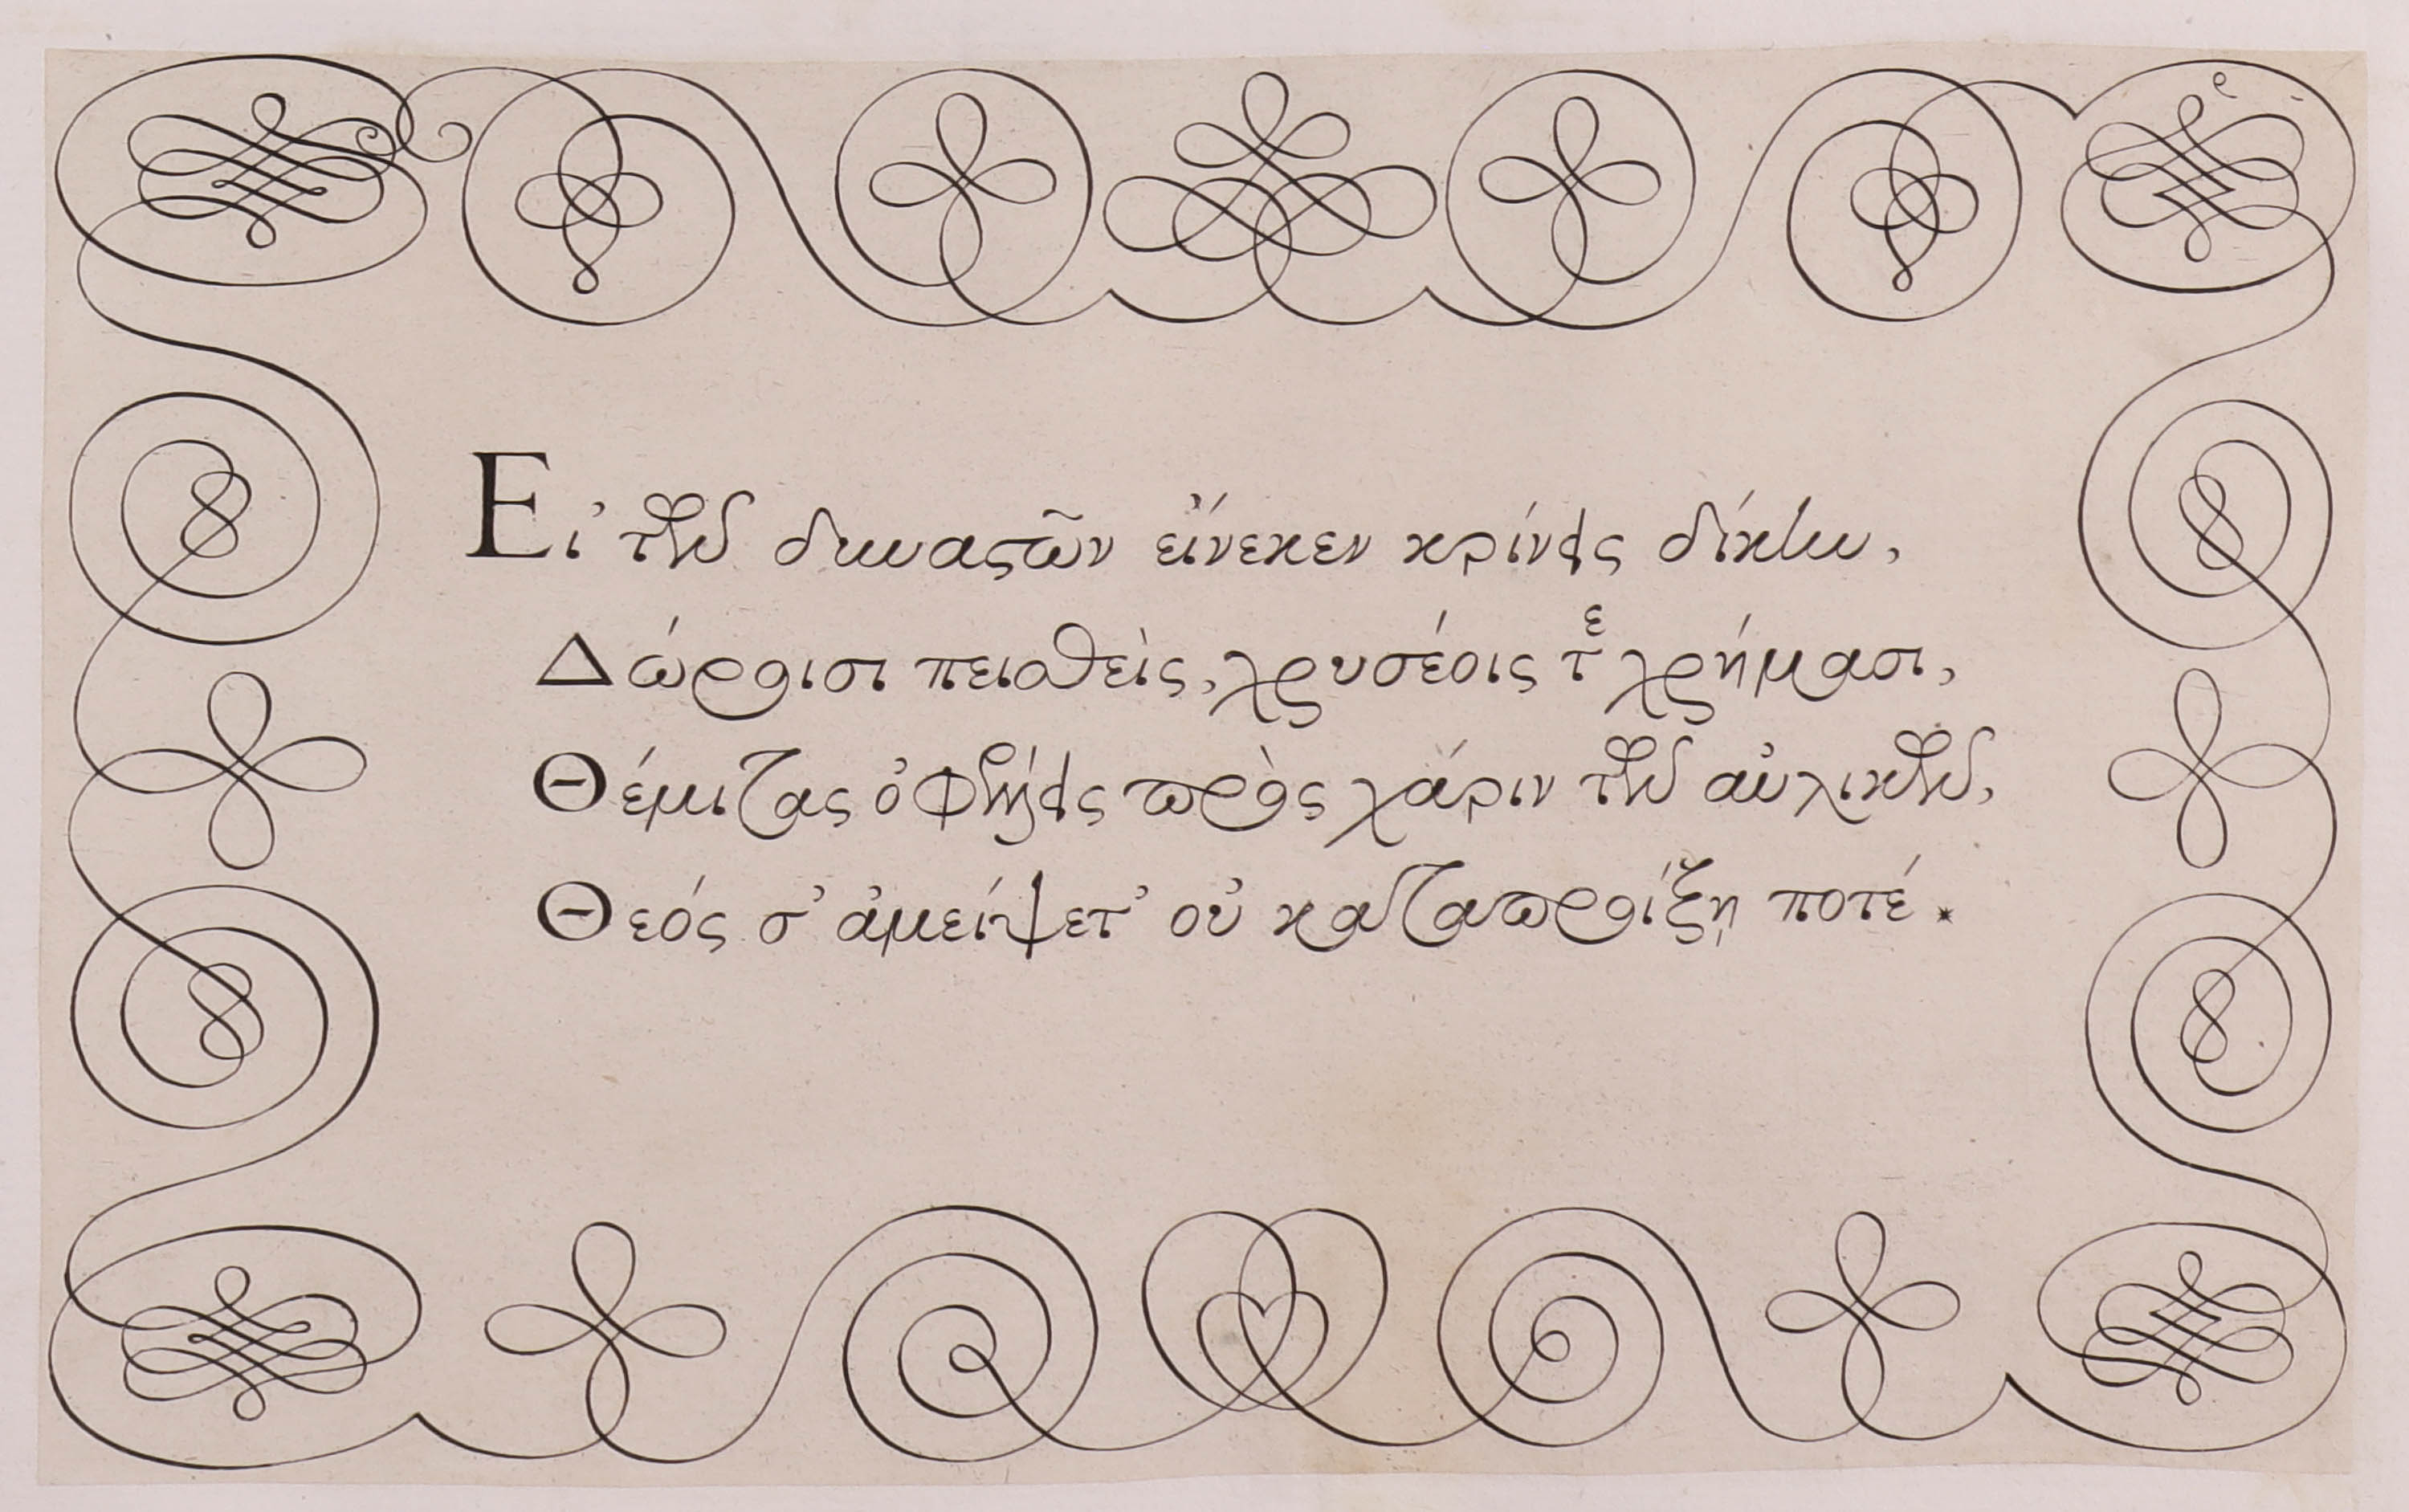 Εἰ τῶν δικαστῶν εἴνεκεν κρίνεις δίκην,
Δώροισι πεισθεὶς, χρυσέοις τε χρήμασι,
Θέμιτας πρὸς χάριν τῶν αὐλικῶν,
Θεός σ' ἀμείψετ' οὐ καταπροίξῃ ποτέ.